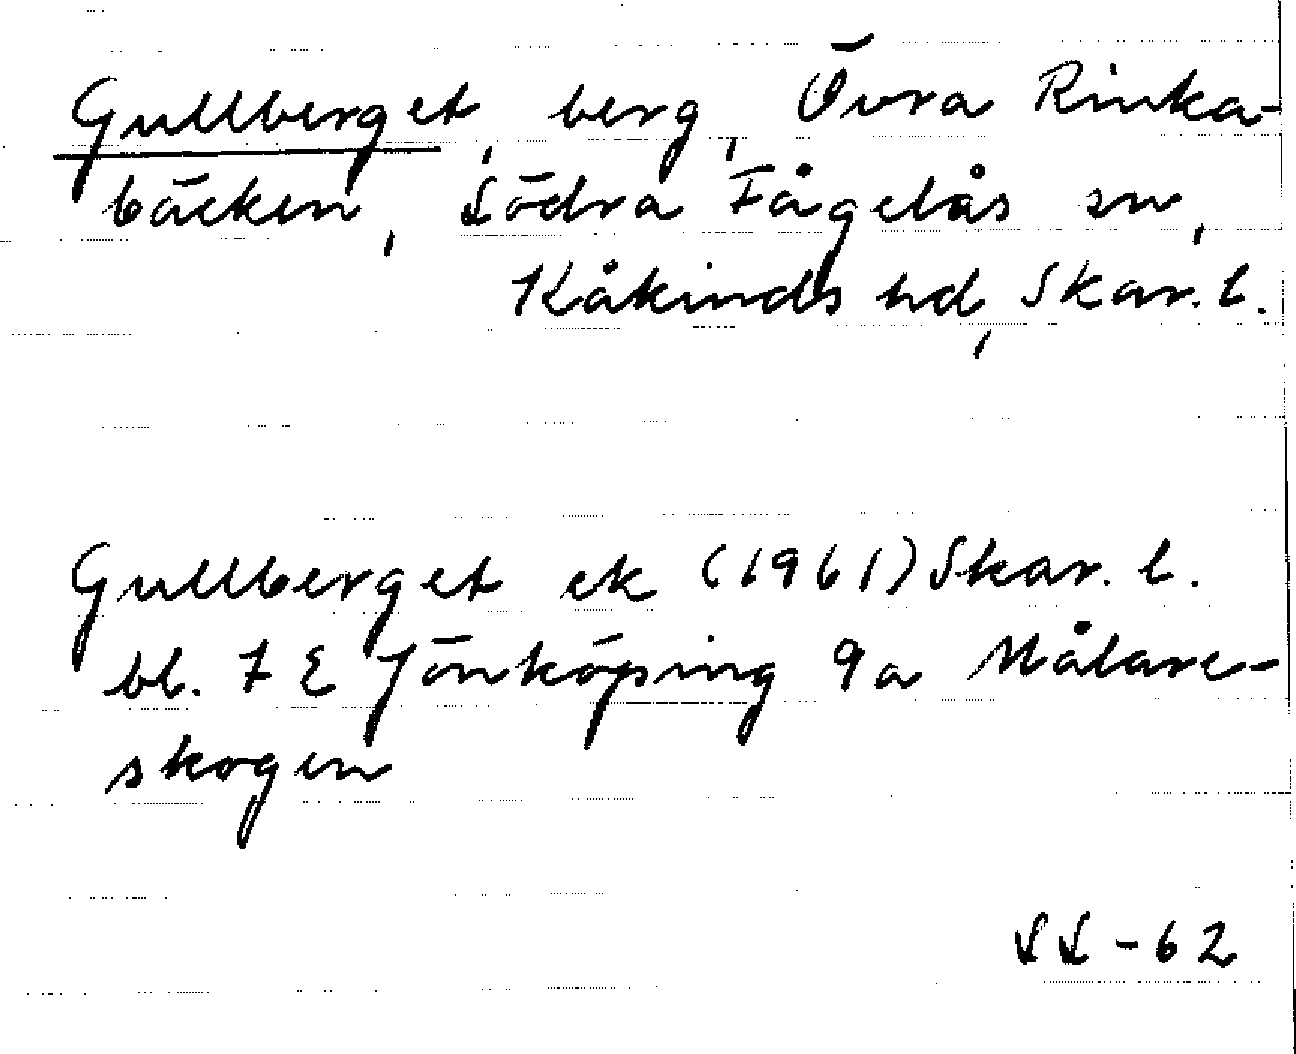 Gullberget, berg, Övra Rinka-
bäcken, Södra Fågelås sn,
Kåkinds hd, Skar. l.
Gullberget ek (1961) Skar. l.
bl. 7 E Jönköping 9a Målare-
skogen
SS - 62